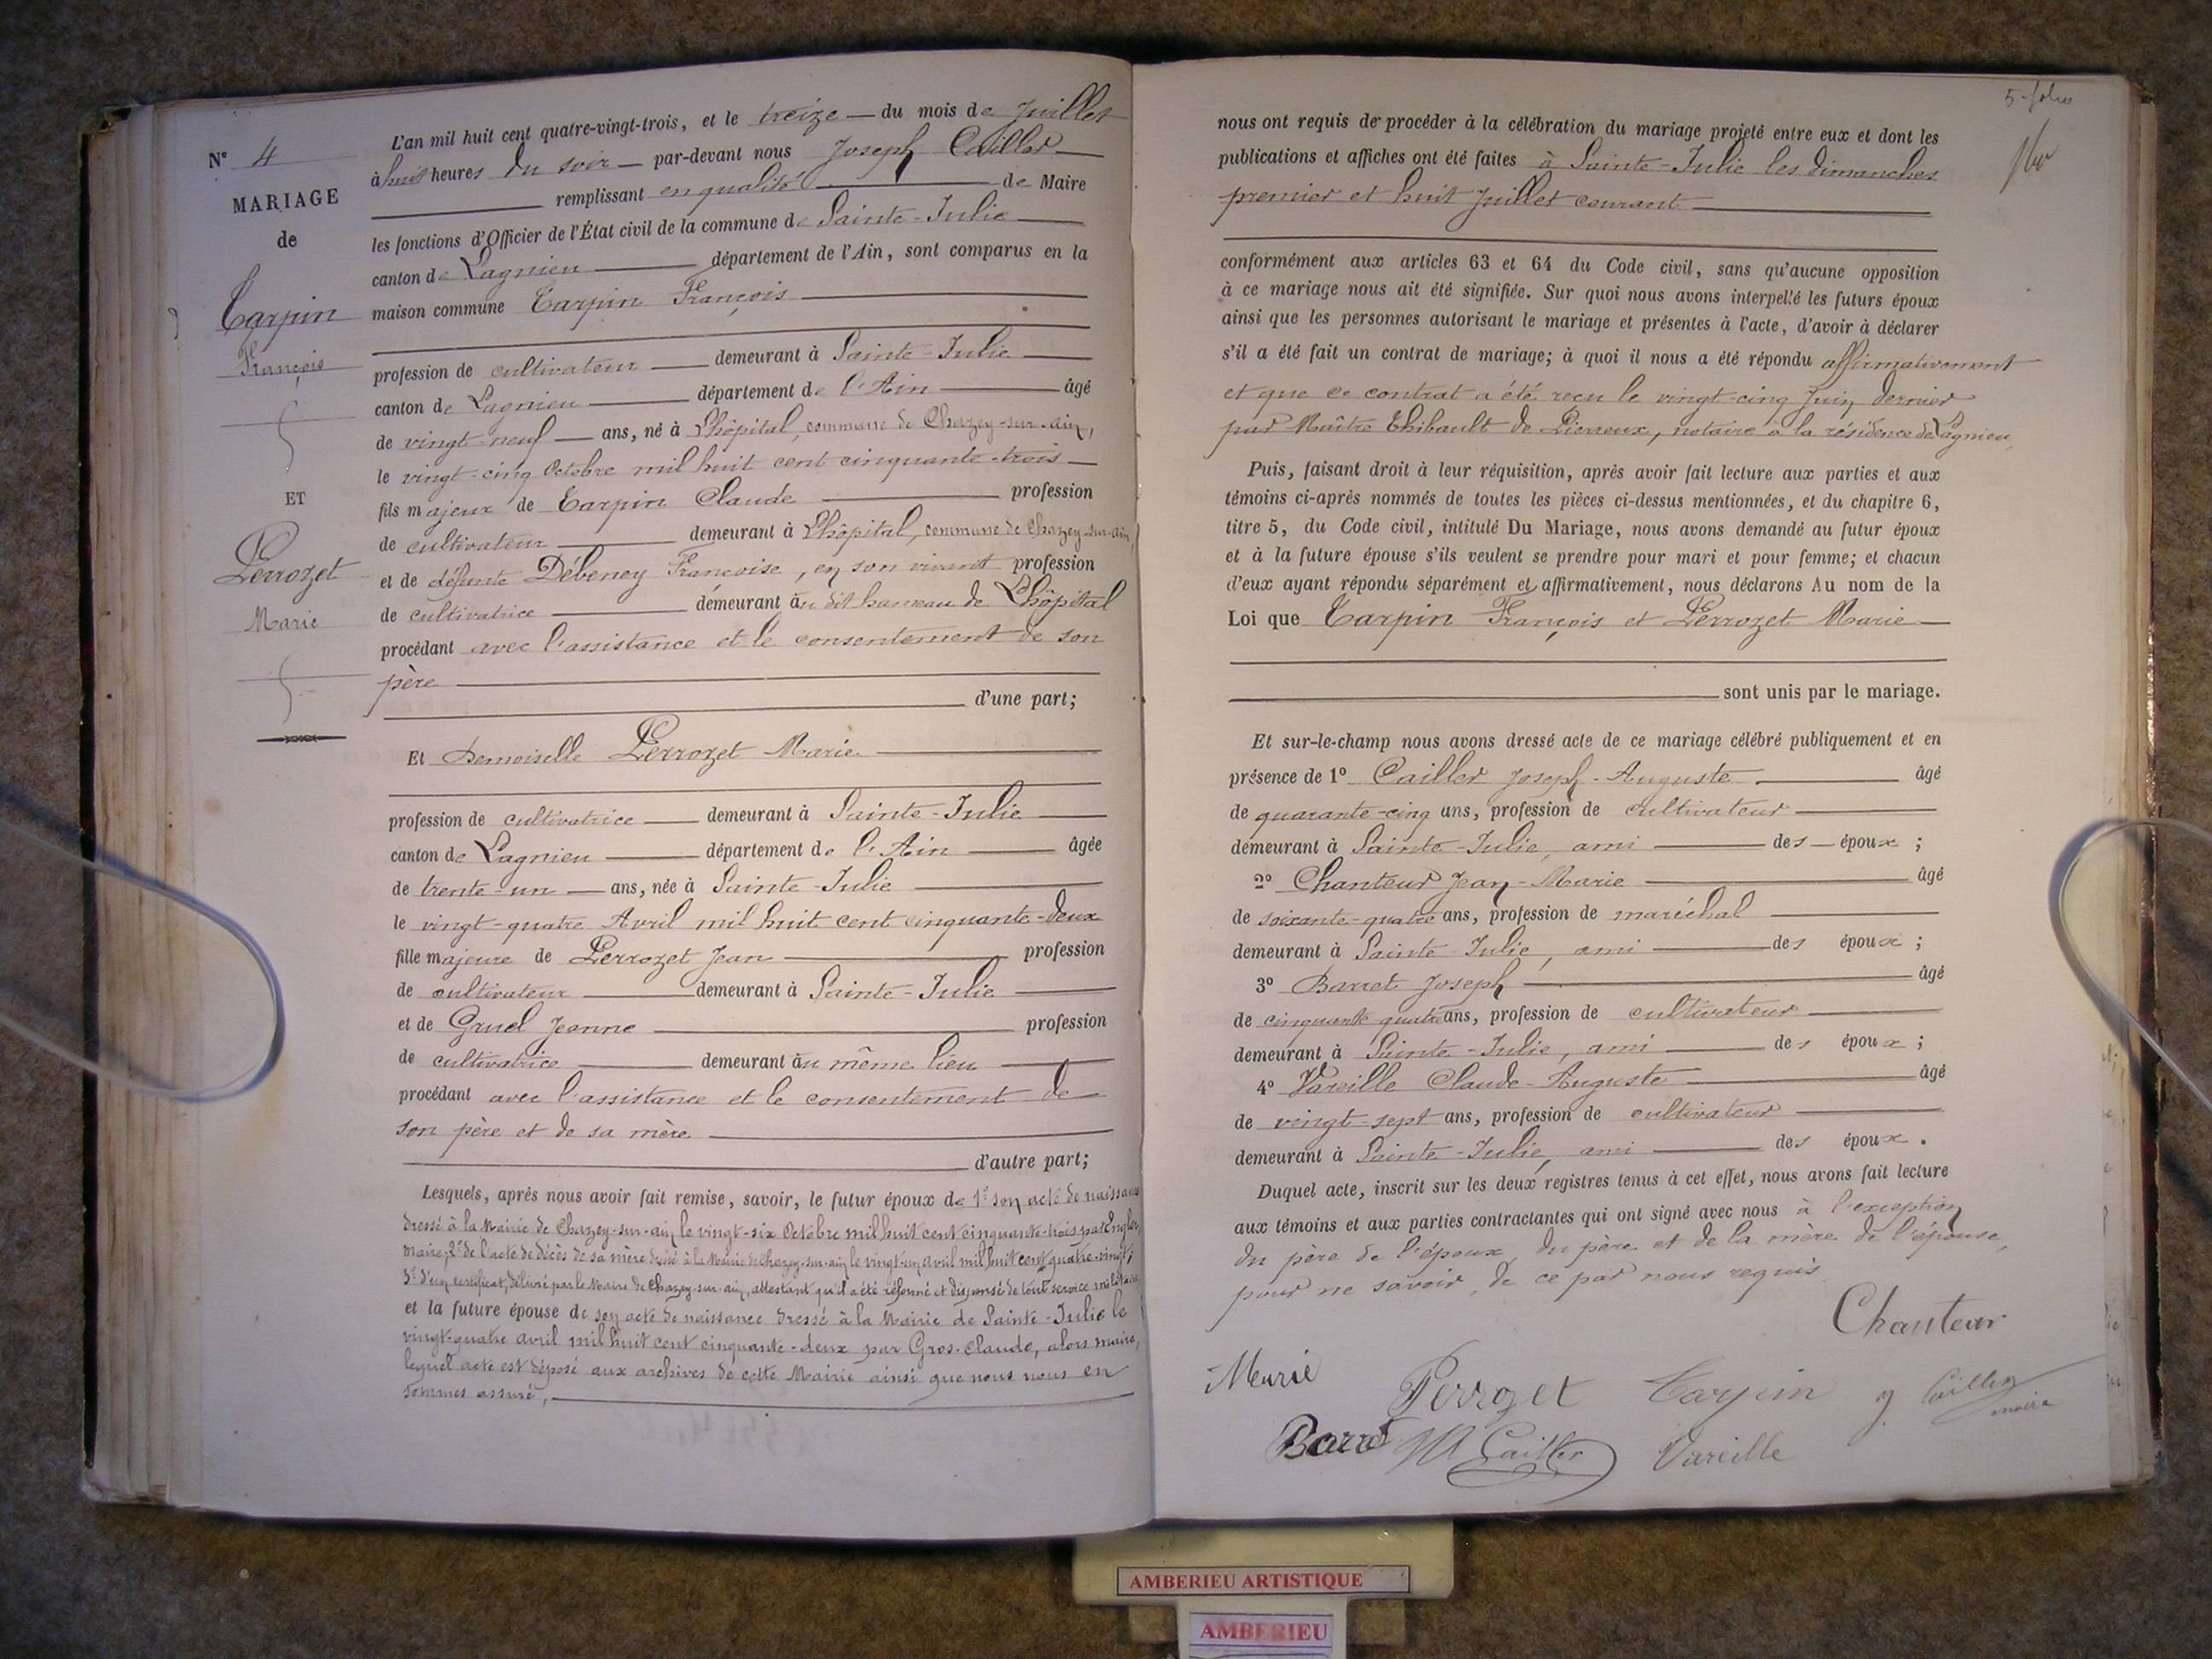 N° 4
MARIAGE
de
Tarpin
François
ET
Perrozet
Marie
L'an mil huit cent quatre-vingt-trois, et le treize du mois de Juillet
à huit heures du soir par-devant nous Joseph Cailler
remplissant en qualité de Maire
les fonctions d'Officier de l'État civil de la commune de Sainte-Julie
canton de Lagnieu département de l'Ain, sont comparus en la
maison commune Tarpin François
profession de cultivateur demeurant à Sainte-Julie
canton de Lagnieu département de l'Ain âgé
de vingt-neuf ans, né à L'hôpital, commune de Chazey-sur-ain,
le vingt-cinq Octobre mil huit cent cinquante-trois
fils majeur de Tarpin Claude profession
de cultivateur demeurant à L'hôpital, commune de Chazey-sur-ain,
et de défunte Débeney Françoise, en son vivant profession
de cultivatrice demeurant au dit hameau de L'hôpital
procédant avec l'assistance et le consentement de son
père
d'une part;
Et Demoiselle Perrozet Marie
profession de cultivatrice demeurant à Sainte-Julie
canton de Lagnieu département de l'Ain âgée
de trente-un ans, née à Sainte-Julie
le vingt-quatre Avril mil huit cent cinquante-deux
fille majeure de Perrozet Jean profession
de cultivateur demeurant à Sainte-Julie
et de Gruel Jeanne profession
de cultivatrice demeurant au même lieu
procédant avec l'assistance et le consentement de
son père et de sa mère
d'autre part;
Lesquels, après nous avoir fait remise, savoir, le futur époux de 1° son acte de naissance
dressé à la Mairie de Chazey-sur-ain le vingt-six Octobre mil huit cent cinquante-trois par
maire, 2° de l'acte de décès de sa mère dressé à la Mairie de Chazey-sur-ain le vingt-un avril mil huit cent quatre-vingt;
3° d'un certificat, délivré par le Maire de Chazey-sur-ain, attestant qu'il a été réformé et dispensé de tout service militaire
et la future épouse de son acte de naissance dressé à la Mairie de Sainte-Julie le
vingt-quatre avril mil huit cent cinquante-deux par Gros-Claude, alors maire,
lequel acte est déposé aux archives de cette Mairie ainsi que nous nous en
sommes assuré,
5 folio
nous ont requis de procéder à la célébration du mariage projeté entre eux et dont les
publications et affiches ont été faites à Sainte-Julie les dimanches
premier et huit Juillet courant
conformément aux articles 63 et 64 du Code civil, sans qu'aucune opposition
à ce mariage nous ait été signifiée. Sur quoi nous avons interpellé les futurs époux
ainsi que les personnes autorisant le mariage et présentes à l'acte, d'avoir à déclarer
s'il a été fait un contrat de mariage; à quoi il nous a été répondu affirmativement
et que ce contrat a été reçu le vingt-cinq Juin dernier
par Maître Thibault de Pierreux, notaire à la résidence de Lagnieu,
Puis, faisant droit à leur réquisition, après avoir fait lecture aux parties et aux
témoins ci-après nommés de toutes les pièces ci-dessus mentionnées, et du chapitre 6,
titre 5, du Code civil, intitulé Du Mariage, nous avons demandé au futur époux
et à la future épouse s'ils veulent se prendre pour mari et pour femme; et chacun
d'eux ayant répondu séparément et affirmativement, nous déclarons Au nom de la
Loi que Tarpin François et Perrozet Marie
sont unis par le mariage.
Et sur-le-champ nous avons dressé acte de ce mariage célébré publiquement et en
présence de 1° Cailler Joseph-Auguste âgé
de quarante-cinq ans, profession de cultivateur
demeurant à Sainte-Julie, ami des époux ;
2° Chanteur Jean-Marie âgé
de soixante-quatre ans, profession de maréchal
demeurant à Sainte-Julie, ami des époux ;
3° Barret Joseph âgé
de cinquante quatre ans, profession de cultivateur
demeurant à Sainte-Julie, ami des époux ;
4° Vareille Claude-Auguste âgé
de vingt-sept ans, profession de cultivateur
demeurant à Sainte-Julie, ami des époux.
Duquel acte, inscrit sur les deux registres tenus à cet effet, nous avons fait lecture
aux témoins et aux parties contractantes qui ont signé avec nous à l'exception
du père de l'époux, du père et de la mère de l'épouse,
pour ne savoir, de ce par nous requis
Chanteur
Marie Perrozet Tarpin J Cailler
maire
Barret Cailler Vareille
AMBERIEU ARTISTIQUE
AMBERIEU